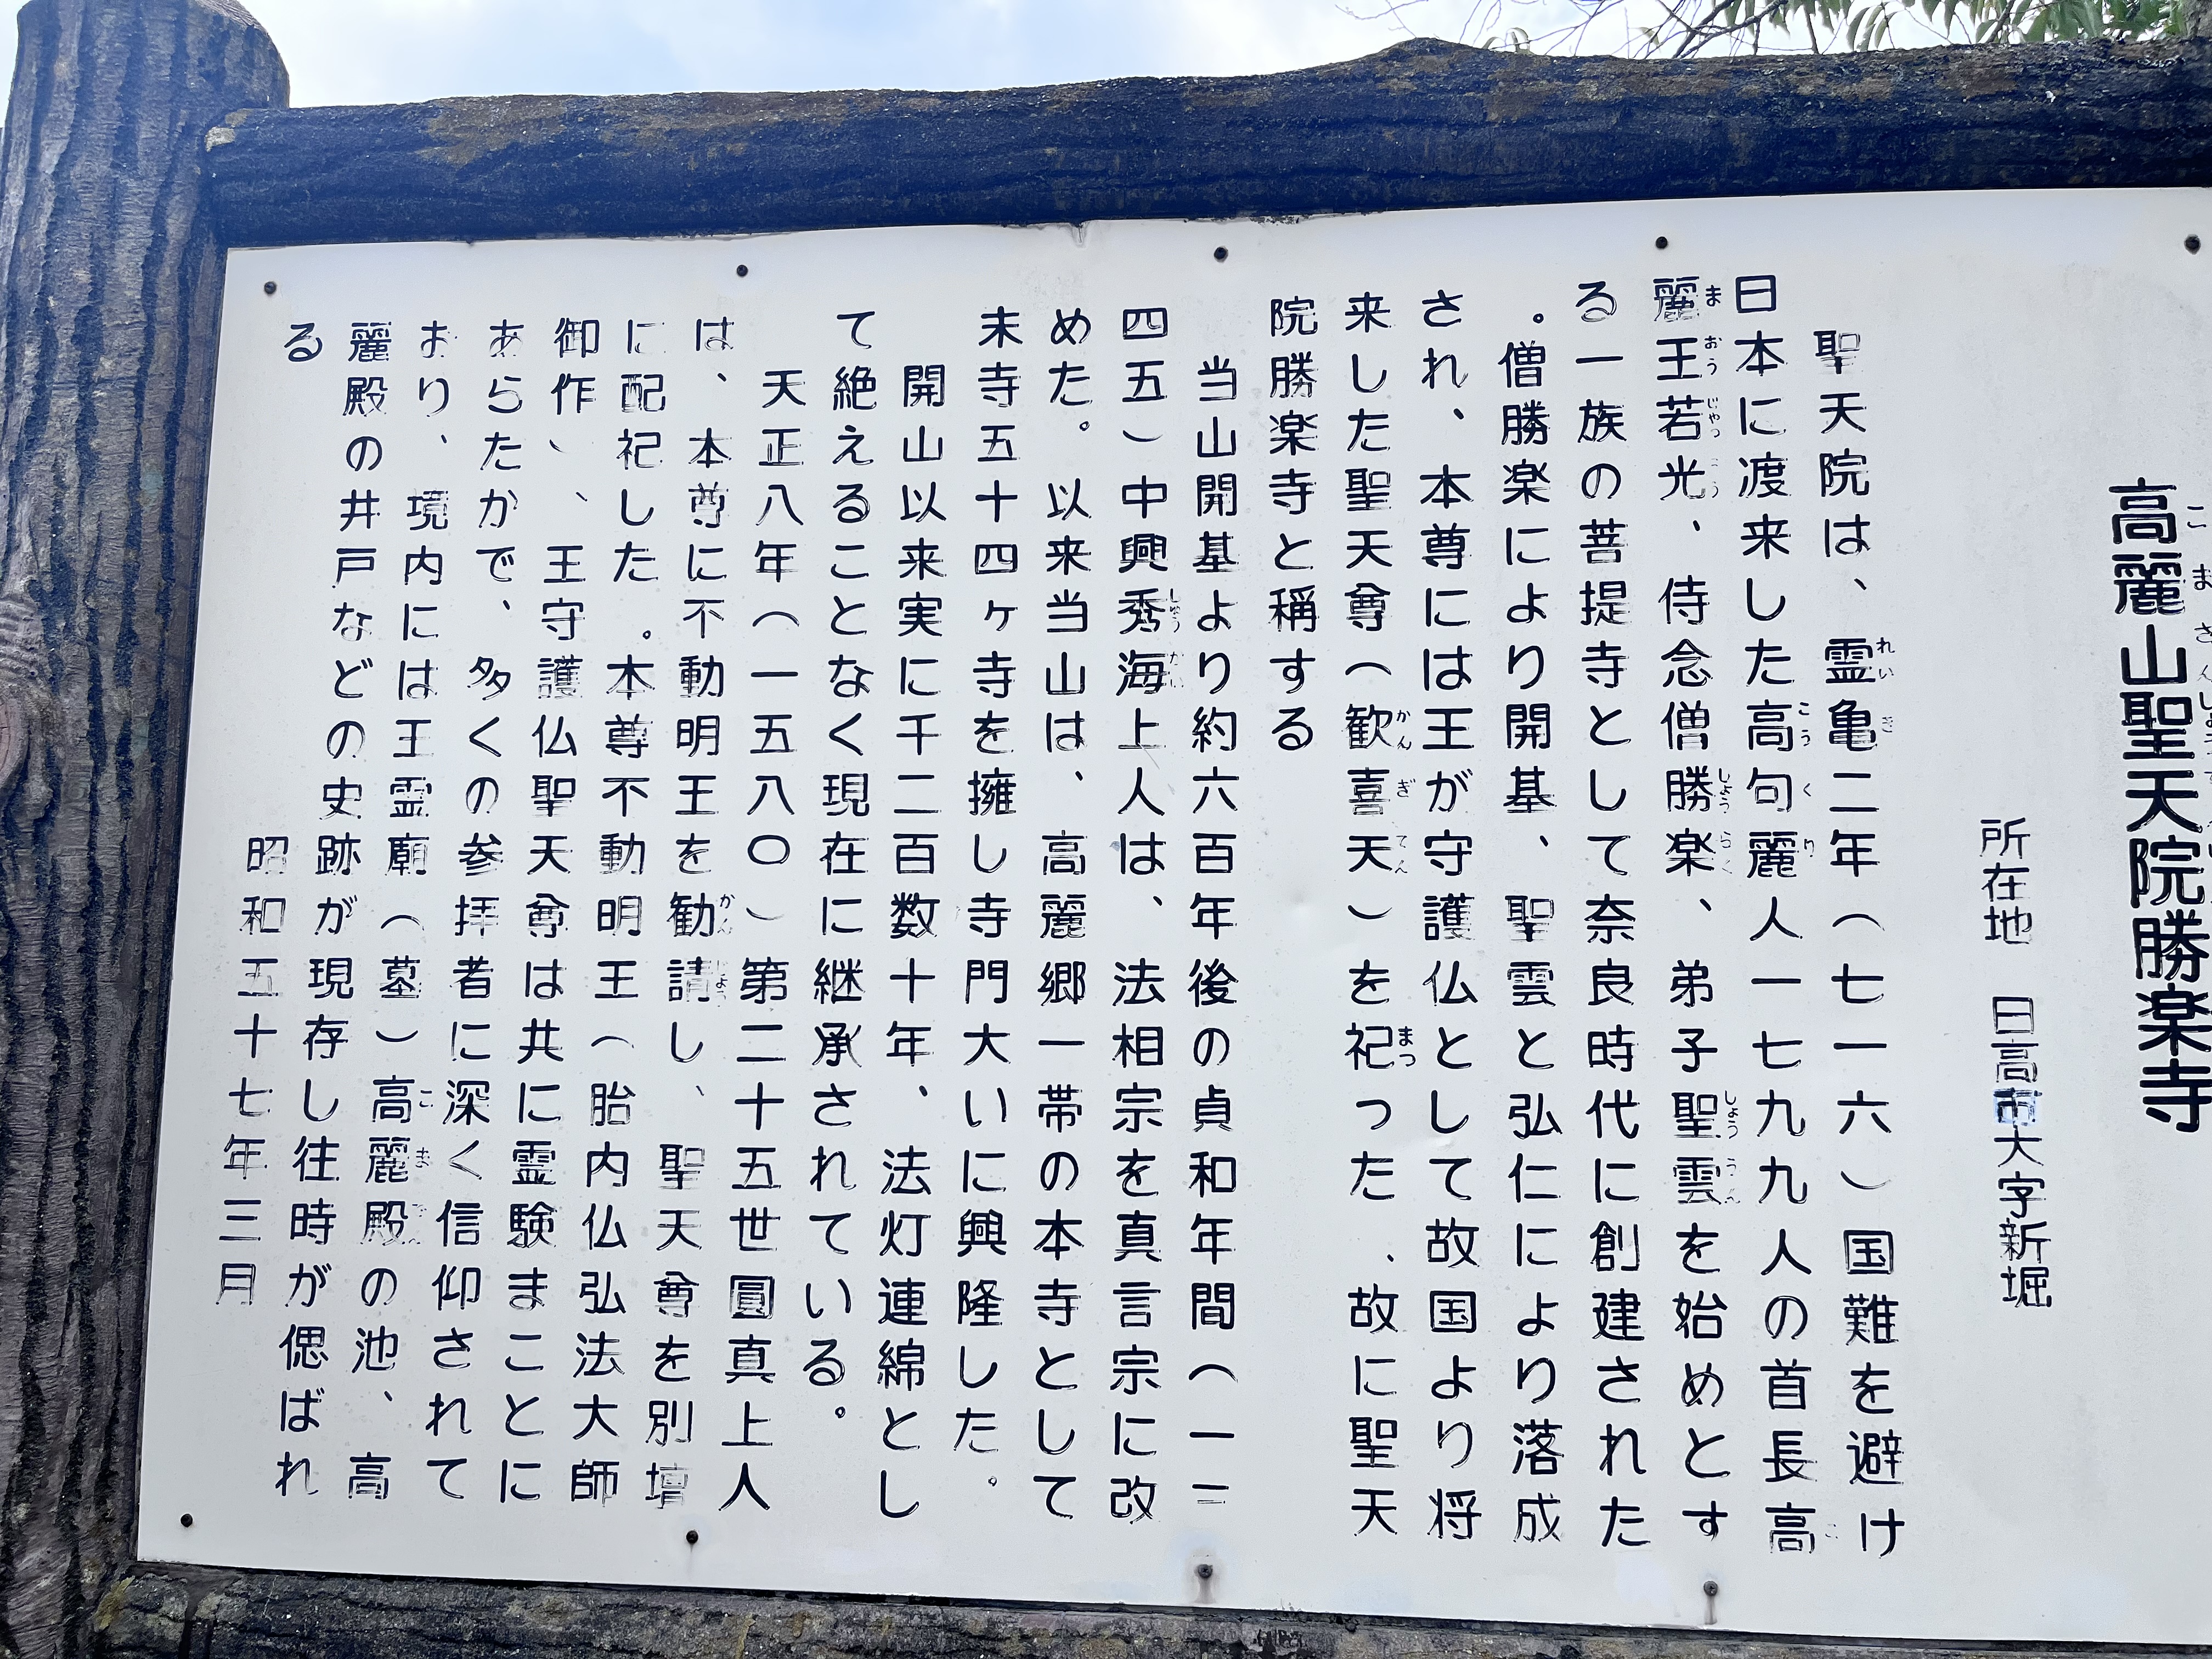 高麗山聖天院勝楽寺
所在地 日高市大字新堀
聖天院は、霊亀二年（七一六）国難を避け
日本に渡来した高句麗人一七九九人の首長高
麗王若光、侍念僧勝楽、弟子聖雲を始めとす
る一族の菩提寺として奈良時代に創建された
。僧勝楽により開基、聖雲と弘仁により落成
され、本尊には王が守護仏として故国より将
来した聖天尊（歓喜天）を祀った、故に聖天
院勝楽寺と称する
当山開基より約六百年後の貞和年間（一三
四五）中興秀海上人は、法相宗を真言宗に改
めた。以来当山は、高麗郷一帯の本寺として
末寺五十四ヶ寺を擁し寺門大いに興隆した。
開山以来実に千二百数十年、法灯連綿とし
て絶えることなく現在に継承されている。
天正八年（一五八〇）第二十五世圓真上人
は、本尊に不動明王を勧請し、聖天尊を別壇
に配祀した。本尊不動明王（胎内仏弘法大師
御作）、王守護仏聖天尊は共に霊験まことに
あらたかで、多くの参拝者に深く信仰されて
おり、境内には王霊廟（墓）高麗殿の池、高
麗殿の井戸などの史跡が現存し往時が偲ばれ
る
昭和五十七年三月